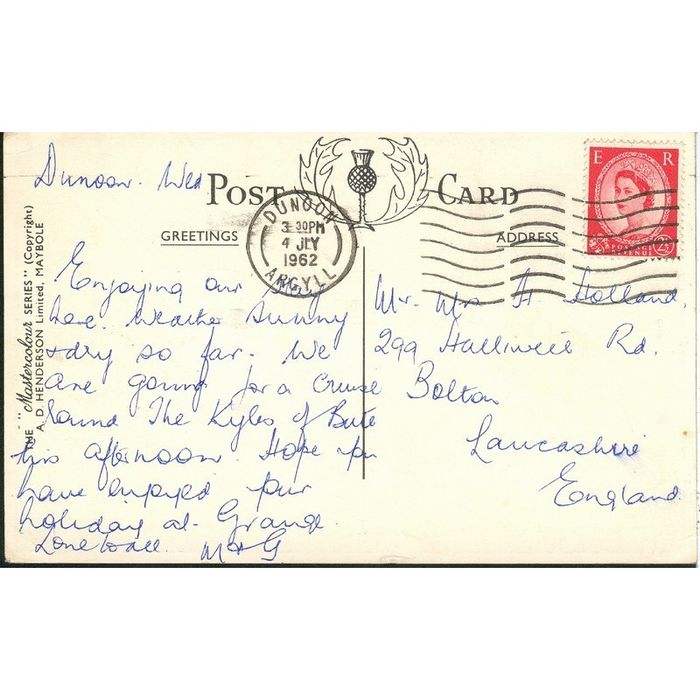 Dunoon. Wed
POST CARD
GREETINGS
ADDRESS
DUNOON
3 30PM
4 JLY
1962
ARGYLL
E R
POSTAGE
REVENUE
2½D
THE "Mastercolour SERIES" (Copyright)
A. D. HENDERSON Limited, MAYBOLE
Enjoying our stay
here. Weather sunny
+ dry so far. We
are going for a cruise
round The Kyles of Bute
this afternoon. Hope you
have enjoyed your
holiday at Grange.
Love to all. M + G
Mr. Mrs H Holland.
299 Halliwell Rd.
Bolton
Lancashire
England.